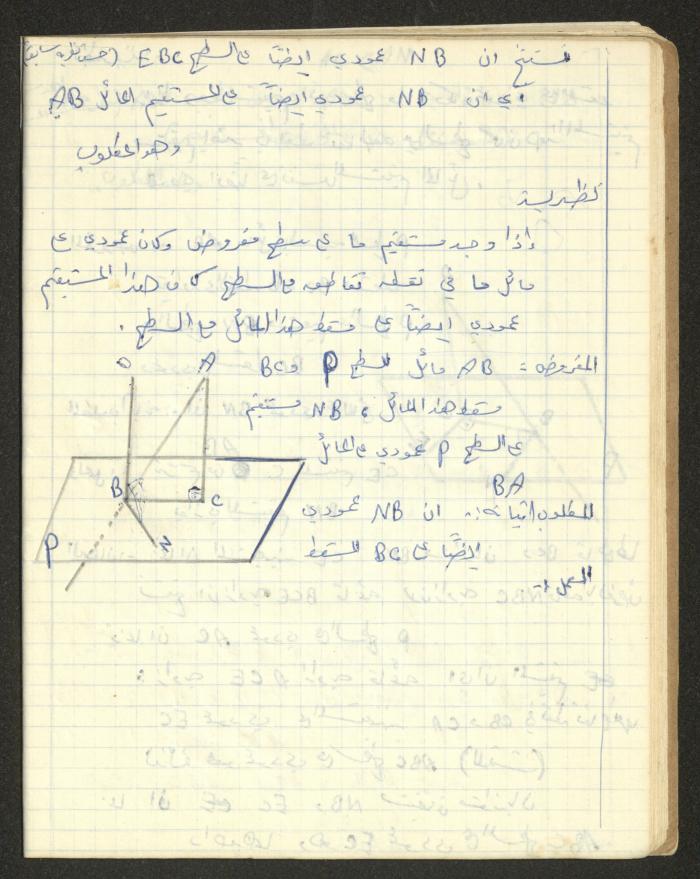 نستنتج ان NB عمودي ايضاً على السطح EBC (حسب نظرية سابقة)
اي ان NB عمودي ايضاً على المستقيم المائل AB
وهو المطلوب
نظرية
إذا وجد مستقيم ما على سطح مفروض وكان عمودي على
مائل ما في نقطة تقاطعه مع السطح كان هذا المستقيم
عمودي ايضاً على مسقط هذا المائل مع السطح .
المفروض :- AB مائل للسطح P و BC
مسقط هذا المائل ، NB مستقيم
على السطح P عمودي على المائل
BA
المطلوب اثباته :- ان NB عمودي
ايضاً على BC المسقط
العمل :-
D A
B C
N
P